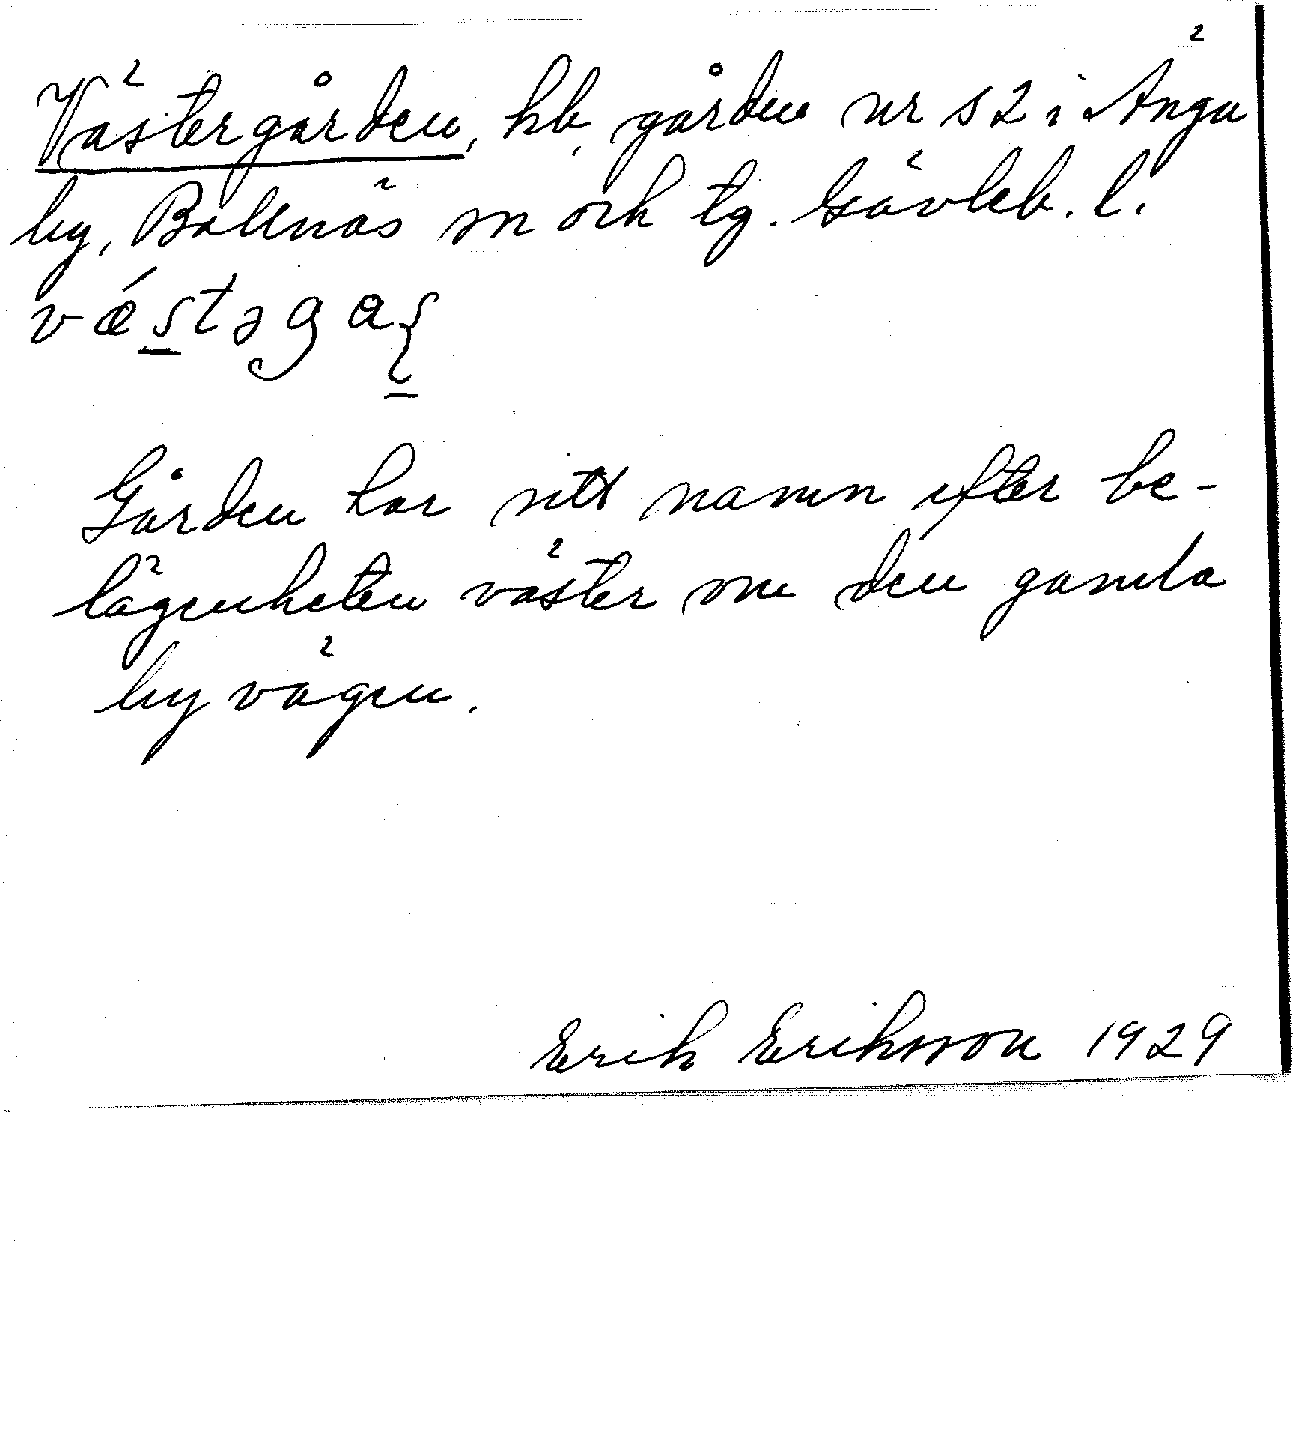 Västergården, hb, gården nr s 2 i Änga
by, Bollnäs sn och tg. Gävleb. l.
vǽstəgaṣ
Gården har sitt namn efter be-
lägenheten väster om den gamla
byvägen.
Erik Eriksson 1929